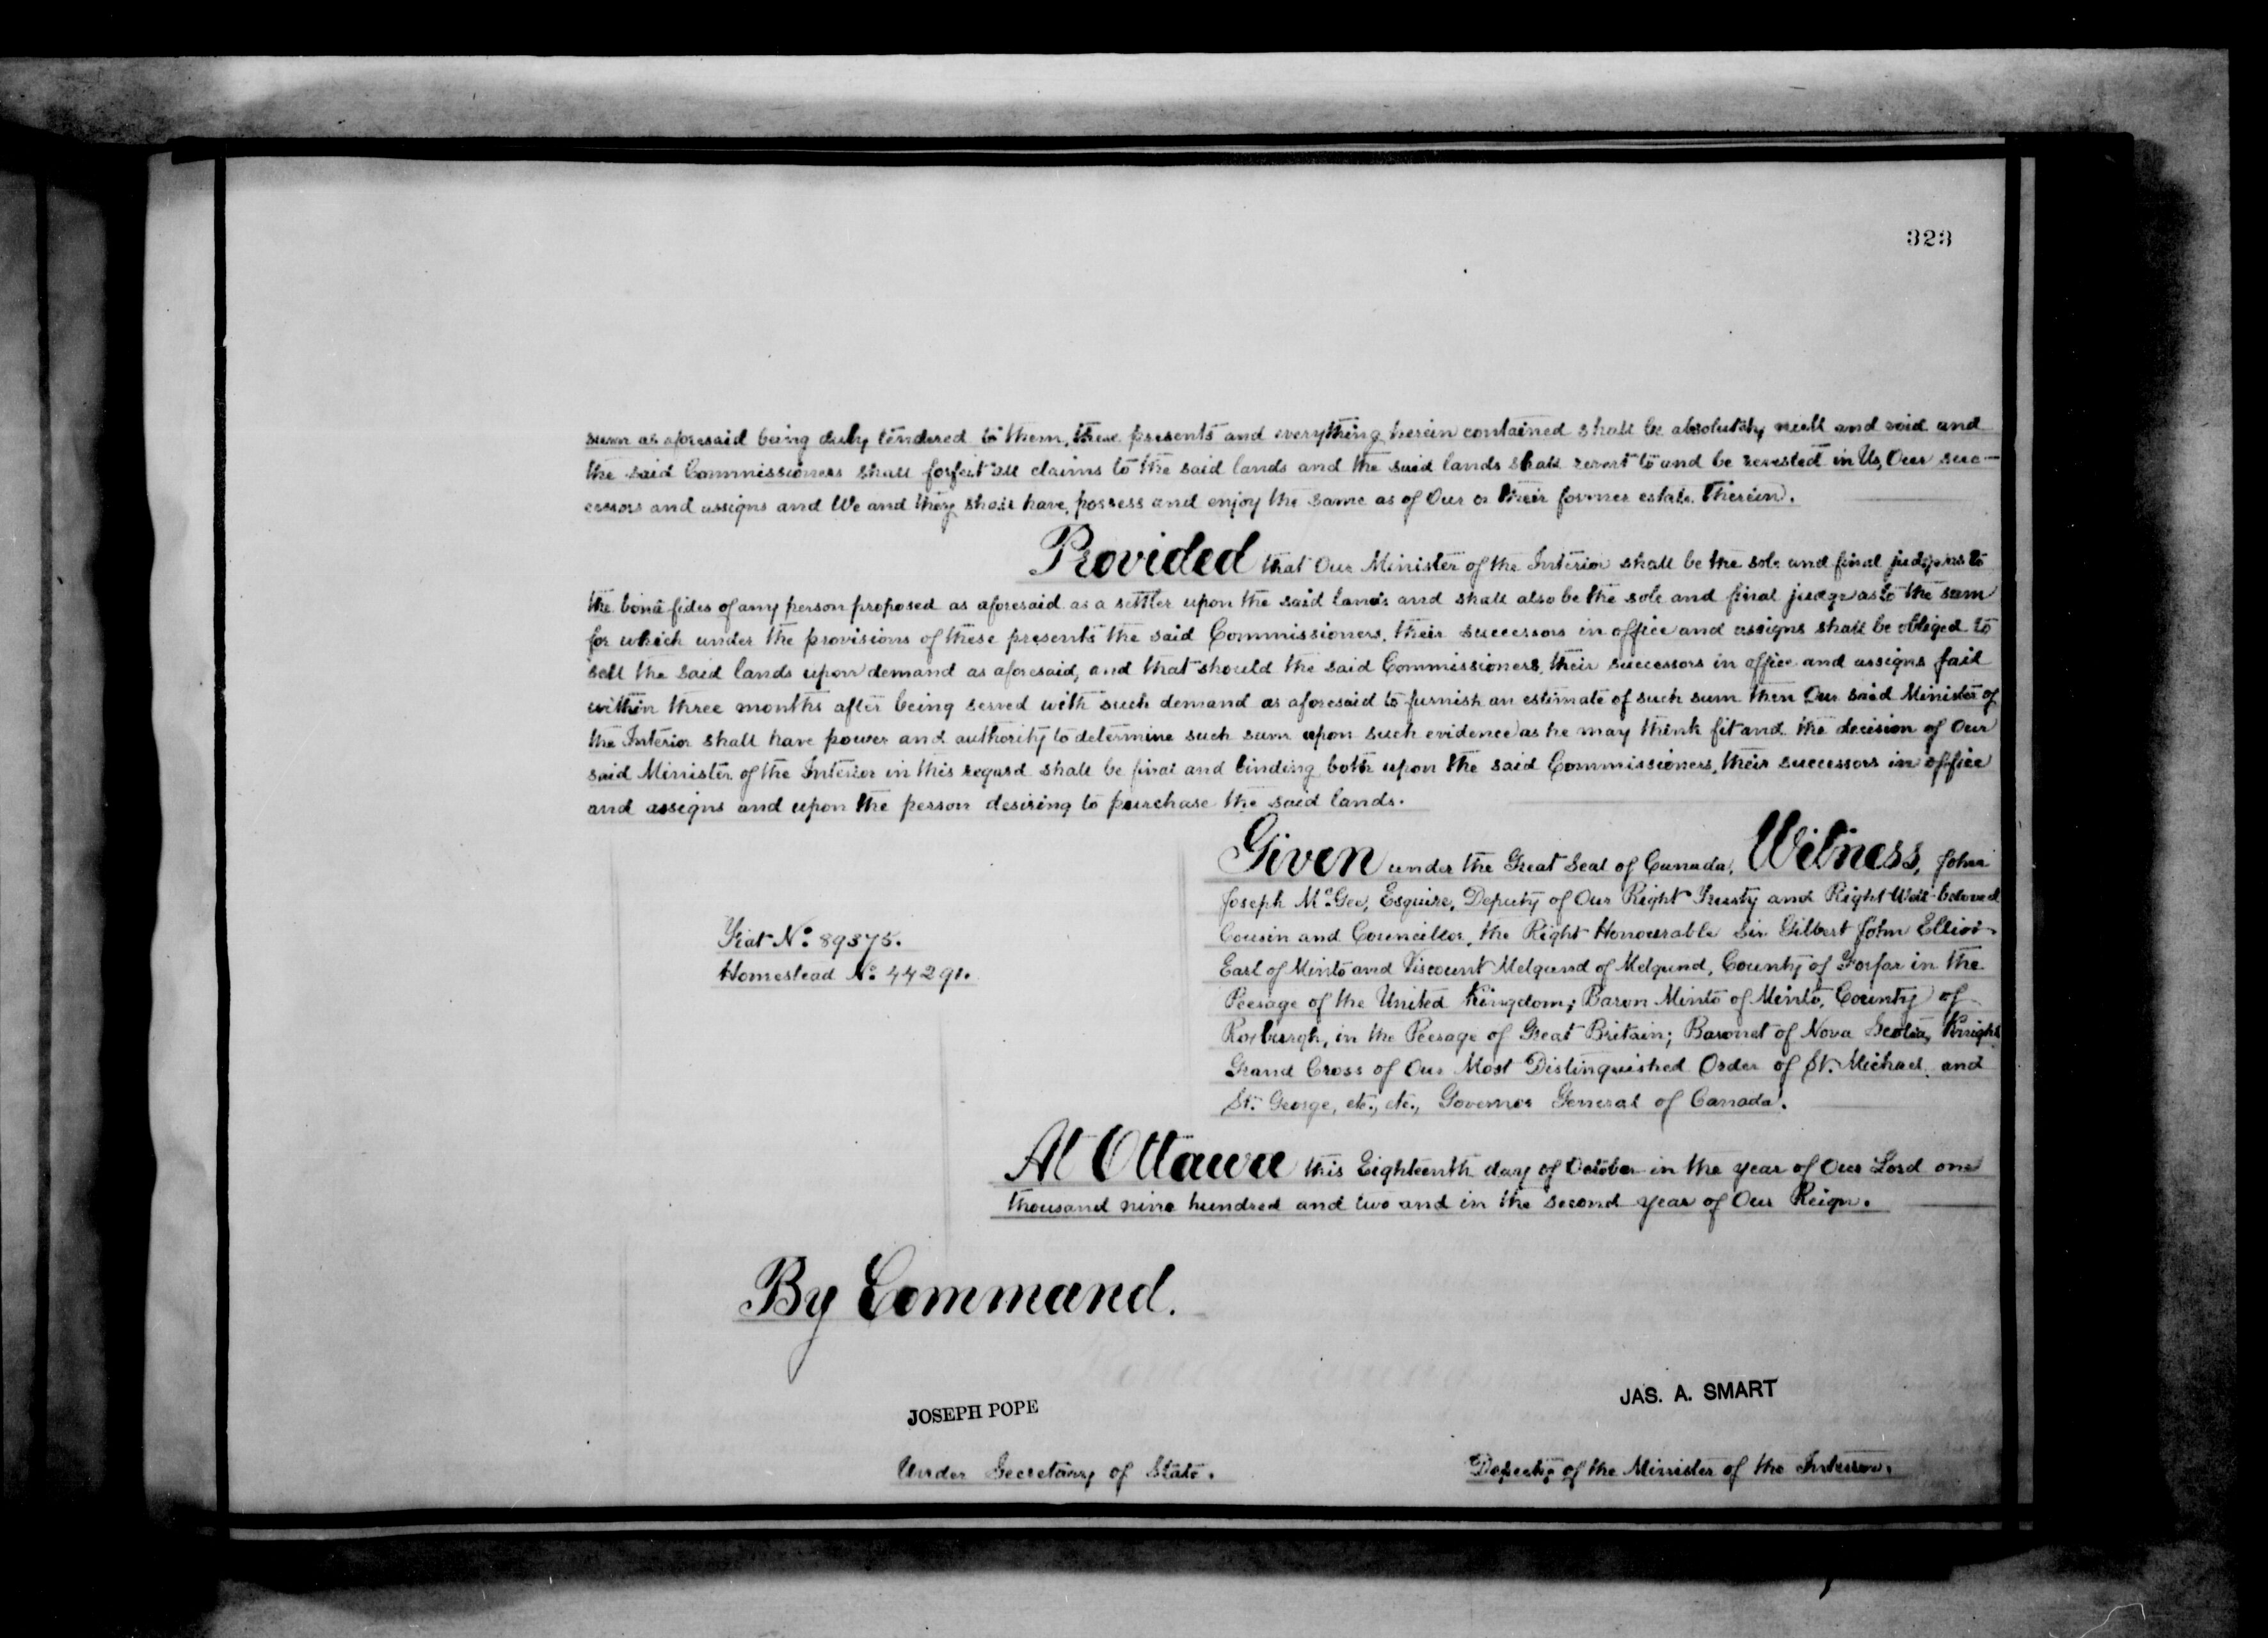 323
sum as aforesaid being duly tendered to them, these presents and everything herein contained shall be absolutely null and void and
the said Commissioners shall forfeit all claims to the said lands and the said lands shall revert to and be revested in Us, Our suc-
cessors and assigns and We and they shall have, possess and enjoy the same as of Our or their former estate therein.
Provided that Our Minister of the Interior shall be the sole and final judge as to
the bonâ fides of any person proposed as aforesaid as a settler upon the said lands and shall also be the sole and final judge as to the sum
for which under the provisions of these presents the said Commissioners, their successors in office and assigns shall be obliged to
sell the said lands upon demand as aforesaid, and that should the said Commissioners, their successors in office and assigns fail
within three months after being served with such demand as aforesaid to furnish an estimate of such sum then Our said Minister of
the Interior shall have power and authority to determine such sum upon such evidence as he may think fit and the decision of Our
said Minister of the Interior in this regard shall be final and binding both upon the said Commissioners, their successors in office
and assigns and upon the person desiring to purchase the said lands.
Given under the Great Seal of Canada, Witness, John
Joseph McGee, Esquire, Deputy of Our Right Trusty and Right Well-beloved
Cousin and Councillor, the Right Honourable Sir Gilbert John Elliot
Earl of Minto and Viscount Melgund of Melgund, County of Forfar in the
Peerage of the United Kingdom; Baron Minto of Minto, County of
Roxburgh, in the Peerage of Great Britain; Baronet of Nova Scotia, Knight
Grand Cross of Our Most Distinguished Order of St. Michael and
St. George, etc., etc., Governor General of Canada.
Fiat No. 89375.
Homestead No. 44291.
At Ottawa this Eighteenth day of October in the year of Our Lord one
thousand nine hundred and two and in the second year of Our Reign.
By Command.
JOSEPH POPE
Under Secretary of State.
JAS. A. SMART
Deputy of the Minister of the Interior.